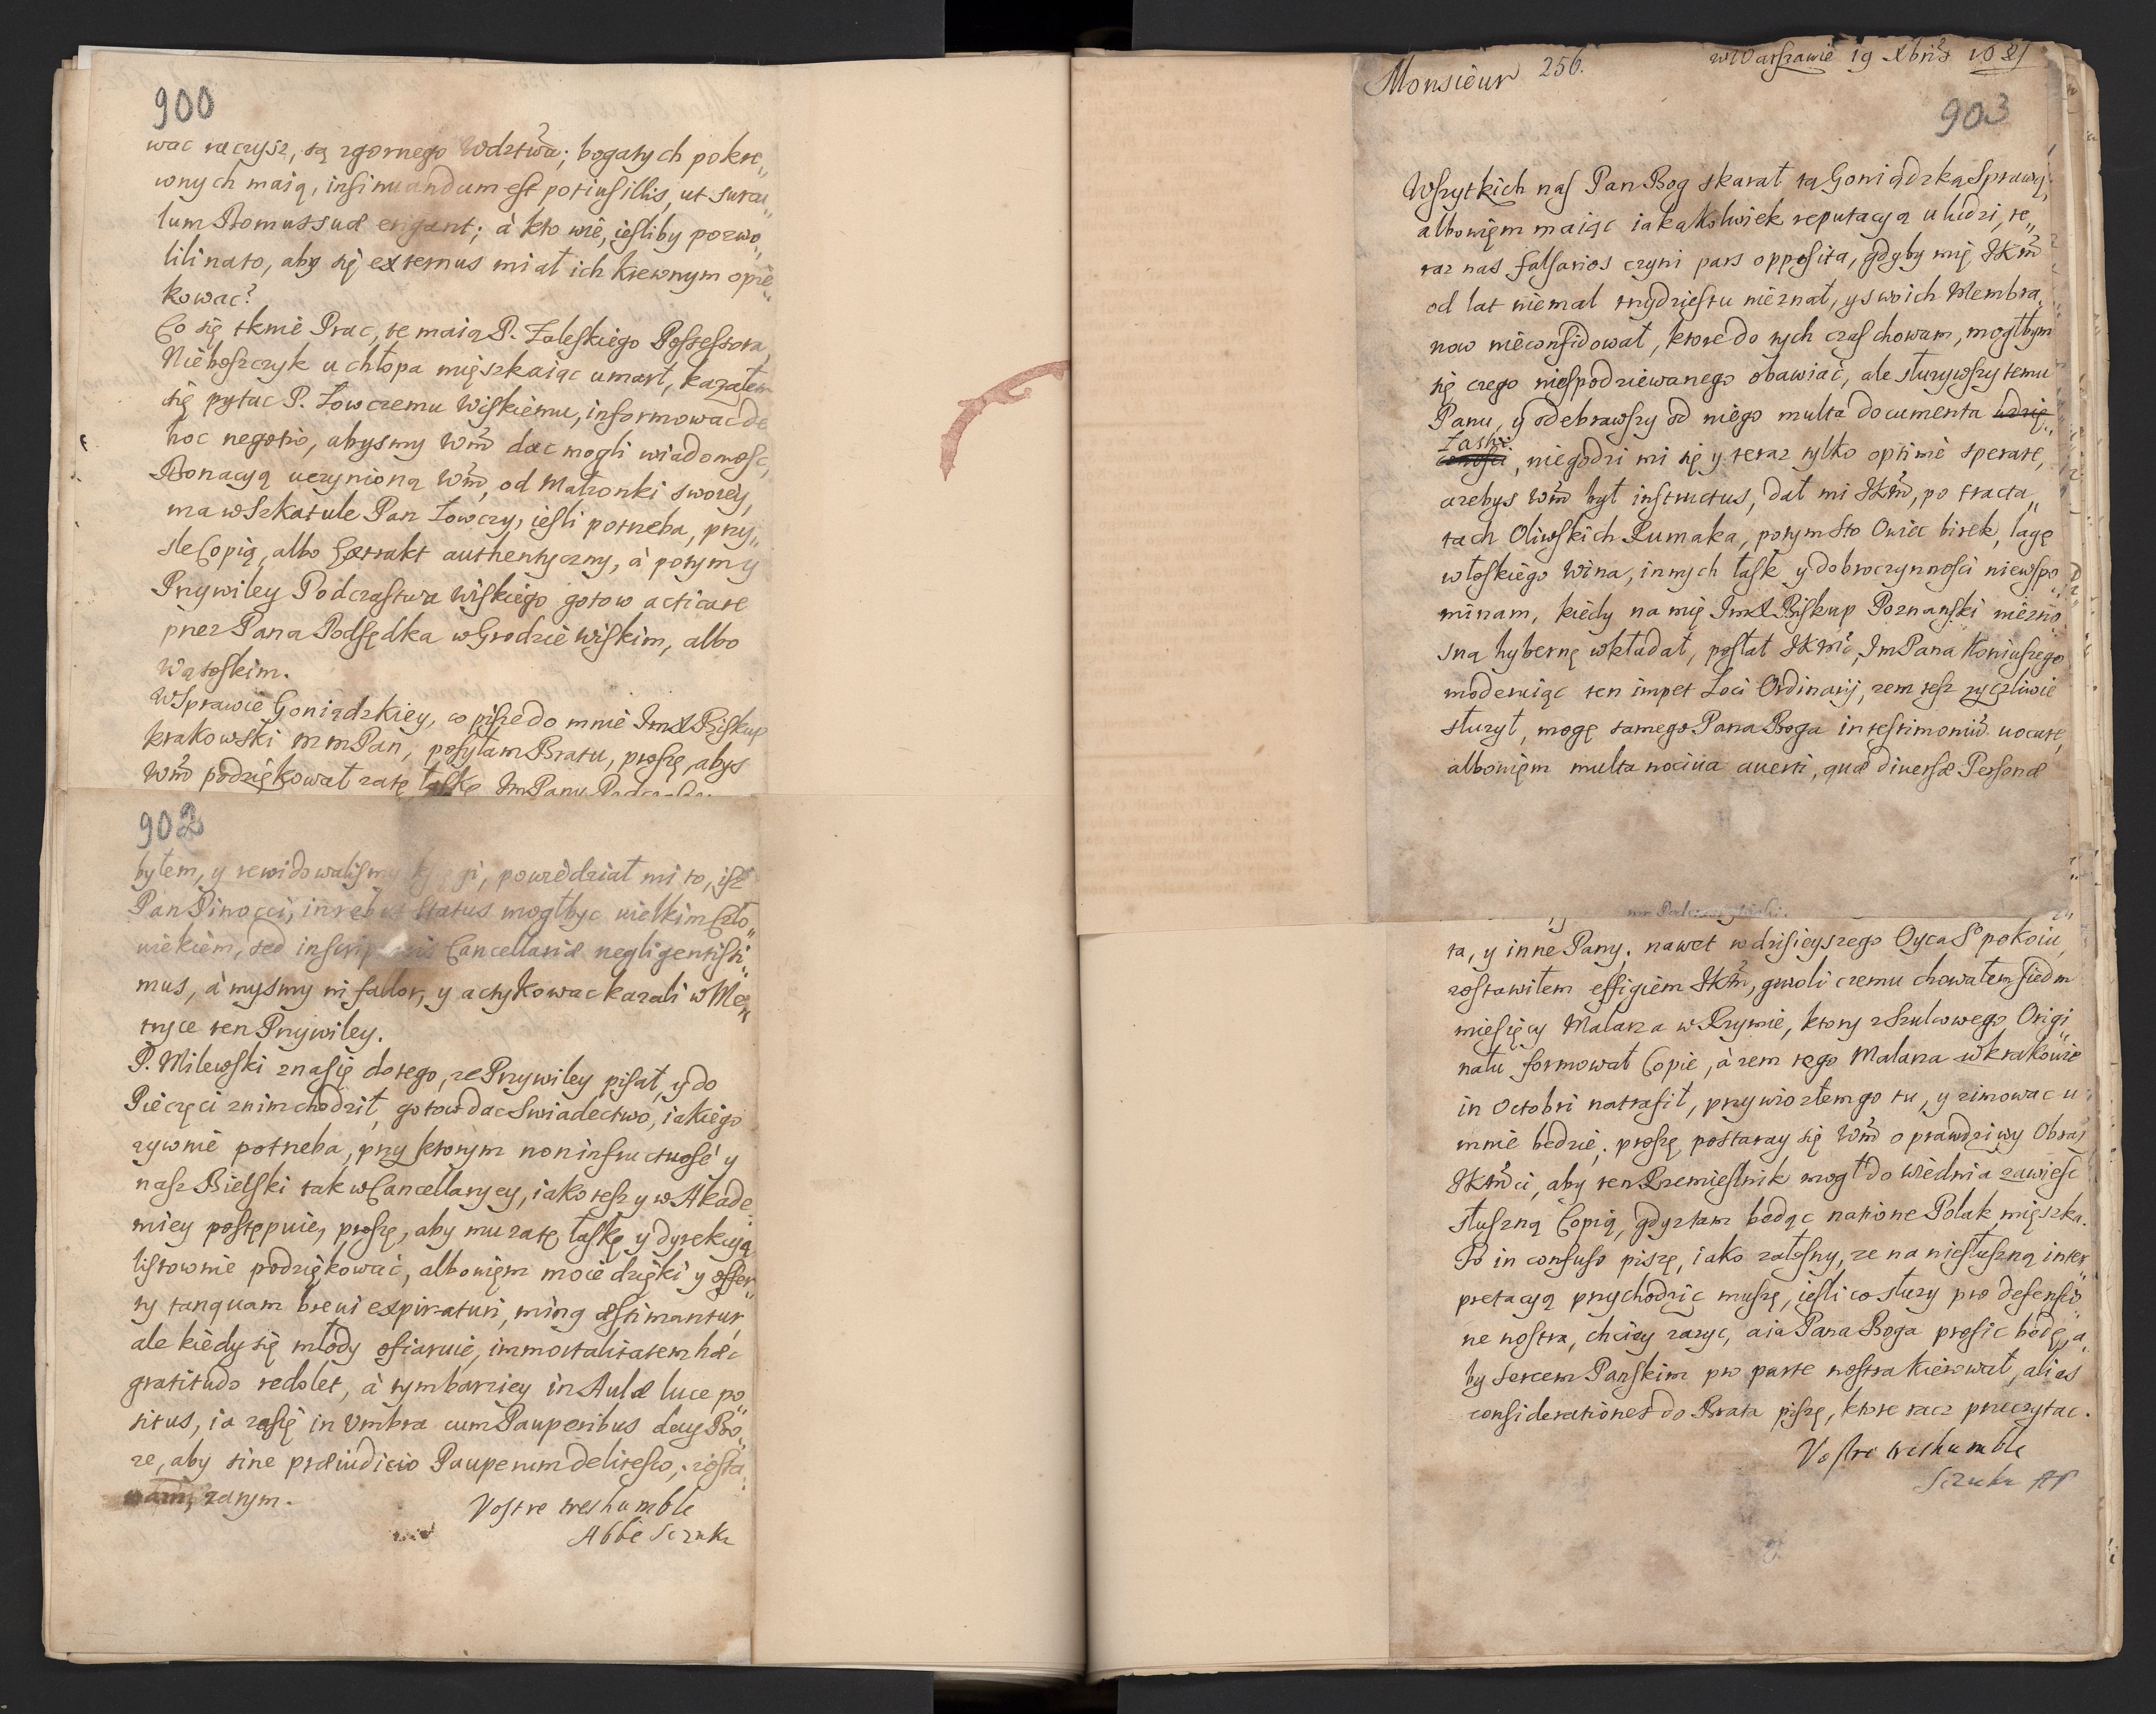 900
wac raczysz, są zgornego Wdztwa; bogatych pokre„
wnych maią, insinuandum est potius illis, ut surcu„
lum Domus suæ erigant; à kto wie, iesliby pozwo„
lili na to, aby się externus miał ich krewnym opie„
kowac?
Co się tknie Prac, te maią P. Zaleskiego Possessora,
Nieboszczyk u chłopa mięszkaiąc umarł, kazałem
się pytac P. Łowczemu Wiskiemu, informowac de
hoc negotio, abysmy Wm̃ dac mogli wiadomosc,
Donacyą uczynioną Wm̃, od Małzonki swoiey,
ma w Szkatule Pan Łowczy, iesli potrzeba, przy„
sle Copią, albo Extrakt authentyczny, à potym y
Przywiley Podczastwa Wiskiego gotow acticare
przez Pana Podsędka w Grodzie Wiskim, albo
Wąsoskim.
W Sprawie Goniądzkiey, co pisze do mnie ImX Biskup
krakowski mmPan, posyłam Bratu, proszę, abys
Wm̃ podziękował za tę łaskę ImPanu
902
byłem, y rewidowalismy księgi, powiedział mi to, isz
Pan Pinocci, in rebus Status mogł byc wielkim Czło„
wiekiem, sed in scriptis Cancellariæ negligentissi„
mus, à mysmy ni fallor, y actykowac kazali w Me„
tryce ten Przywiley.
P. Milewski zna się do tego, ze Przywiley pisał, y do
Pieczęci z nim chodził, gotow dac Swiadectwo, iakiego
zywnie potrzeba, przy ktorym non infructuosé y
nasz Bielski tak w Cancellaryey, iako tesz y w Akade„
miey postępuie, proszę, aby mu za tę łaskę y dyrekcyą
listownie podziękowác, albowięm moie dzięki y offer„
ty tanquam breui expiraturi, minq æstimantur,
ale kiedy się młody ofiaruie, immortalitatem hæc
gratitudo redolet, à tym barziey in Aulæ luce po„
situs, ia zasię in Vmbra cum Pauperibus day Bo„
ze, aby sine præiudicio Pauperum delitesco, zosta„
zatym.
Vostre treshumble
Abbé Sczuka
Monsieur 256. w Warszawie 19 Xbris
903
Wszytkich nas Pan Bog skarał tą Goniądzką Sprawą,
albowięm maiąc iakążkolwiek reputacyą u ludzi, te„
raz nas falsarios czyni pars opposita, gdyby mię JKm̃
od lat niemal trzydziestu nie znał, y swoich Membra„
now nie confidował, ktore do tych czas chowam, mogłbym
się czego niespodziewanego obawiać, ale słuzywszy temu
Panu, y odebrawszy od niego multa documenta
Łaski, niegodzi mi się y teraz tylko optimè sperare,
azebys Wm̃ był instructus, dał mi JKm̃, po tracta„
tach Oliwskich Rumaka, potym sto Owiec birek, lagę
włoskiego Wina, innych łask y dobroczynnosci niewspo„
minam, kiedy na mię ImX Biskup Poznański niezno„
sną hybernę wkładał, posłał JKm̃c, ImPana Koniuszego
moderuiąc ten impet Loci Ordinarij, zem tesz zyczliwie
słuzył, mogę samego Pana Boga in testimoniũ uocare,
albowięm multa nociua auerti, quæ diuersæ Personæ
ta, y inne Pany, nawet w dzisieyszego Oyca Sº pokoiu
zostawiłem effigiem JKm̃, gwoli czemu chowałem siedm
miesięcy Malarza w Rzymie, ktory z Szulcowego Origi„
nału formował Copie, à zem tego Malarza w krakowie
in Octobri natrafił, przywiozłem go tu, y zimowac u
mnie bedzie, proszę postaray się Wm̃ o prawdziwy Obraz
JKm̃ci, aby ten Rzemieslnik mogł do Wiednia zawiesc
słuszną Copią, gdyz tam bedąc natione Polak mięszka.
To in confuso piszę, iako załosny, ze na niesłuszną inter„
pretacyą przychodzic muszę, iesli co słuzy pro defensio„
ne nostra, chciey zazyc, a ia Pana Boga prosic będę, a„
by sercem Pańskim pro parte nostra kierował, alias
considerationes do Brata piszę, ktore racz przeczytac.
Vostre treshumble
Sczuka